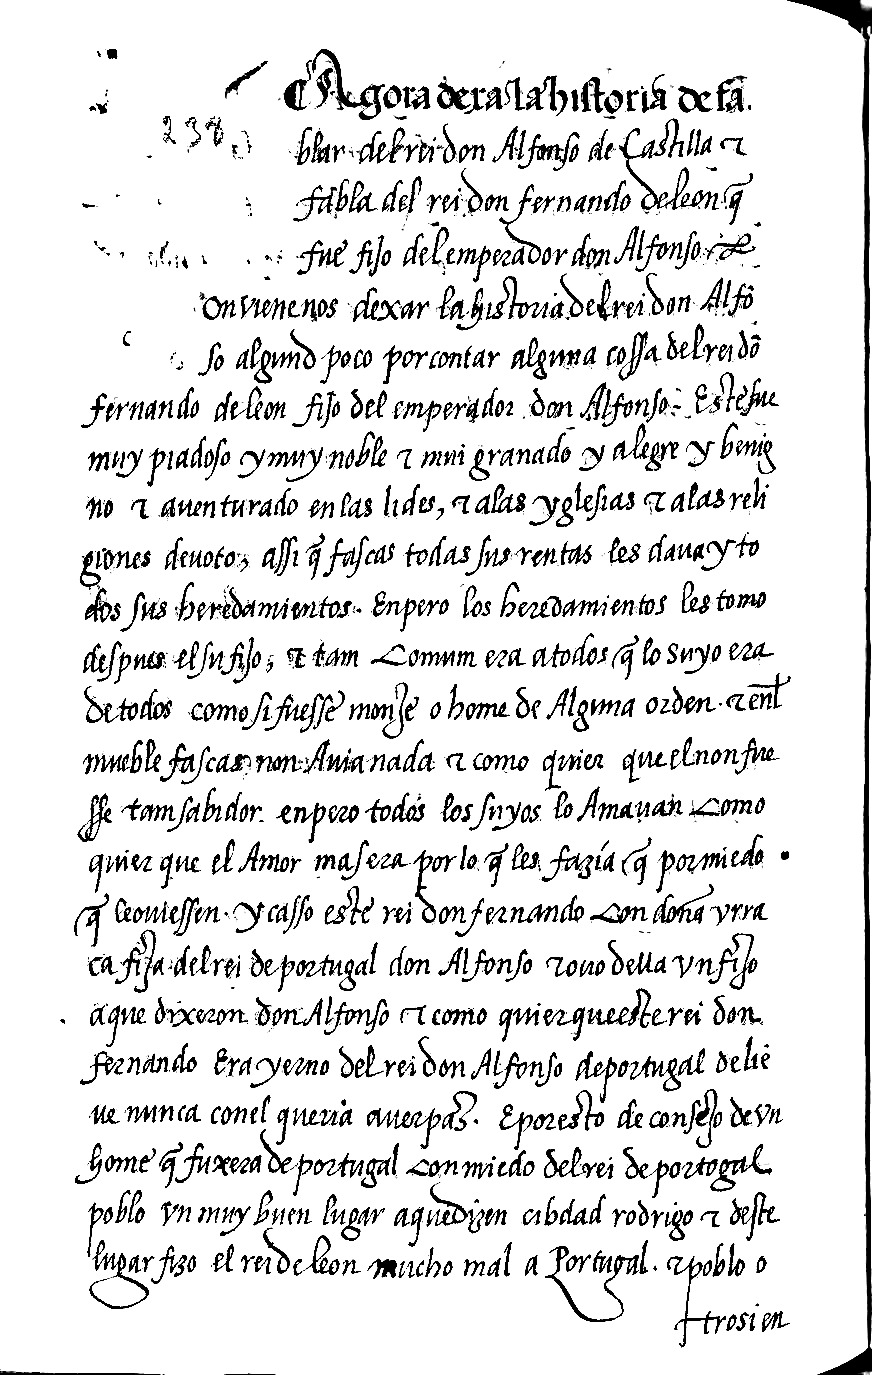 238
Agora dexa la historia de fã
blar del rei don Alfonso de Castilla ⁊
fabla del rei don fernando de leon q̃
fue fijo del emperador don Alfonso
Onviene nos dexar la historia del rei don Alfõ
so algund poco por contar alguna cossa del rei dõ
fernando de leon fijo del emperador don Alfonso. Este fue
muy piadoso y muy noble ⁊ mui granado y alegre y benig
no ⁊ aventurado en las lides, ⁊ alas yglesias ⁊ alas reli
giones devoto, assi q̃ fascas todas sus rentas les dava y to
dos sus heredamientos. Enpero los heredamientos les tomo
despues el su fijo, ⁊ tam Comum era atodos q̃ lo suyo era
de todos como si fuesse monje o home de Alguna orden. ⁊ enl
mueble fascas non Avia nada ⁊ como quier que el non fue
sse tam sabidor. enpero todos los suyos lo Amavan Como
quier que el Amor mas era por lo q̃ les fazía q̃ por miedo
q̃ leoviessen. Y casso este rei don fernando Con doña vrra
ca fija del rei de portugal don Alfonso ⁊ ovo della vn fijo
aque dixeron don Alfonso ⁊ como quier que este rei don
fernando Era yerno del rei don Alfonso de portugal de lie
ve nunca conel queria aver paz. E por esto de consejo de vn
home q̃ fuxera de portugal Con miedo del rei de portogal
poblo vn muy buen lugar aque dizen cibdad rodrigo ⁊ deste
lugar fizo el rei de leon mucho mal a Portugal. ⁊ poblo o
trosi en